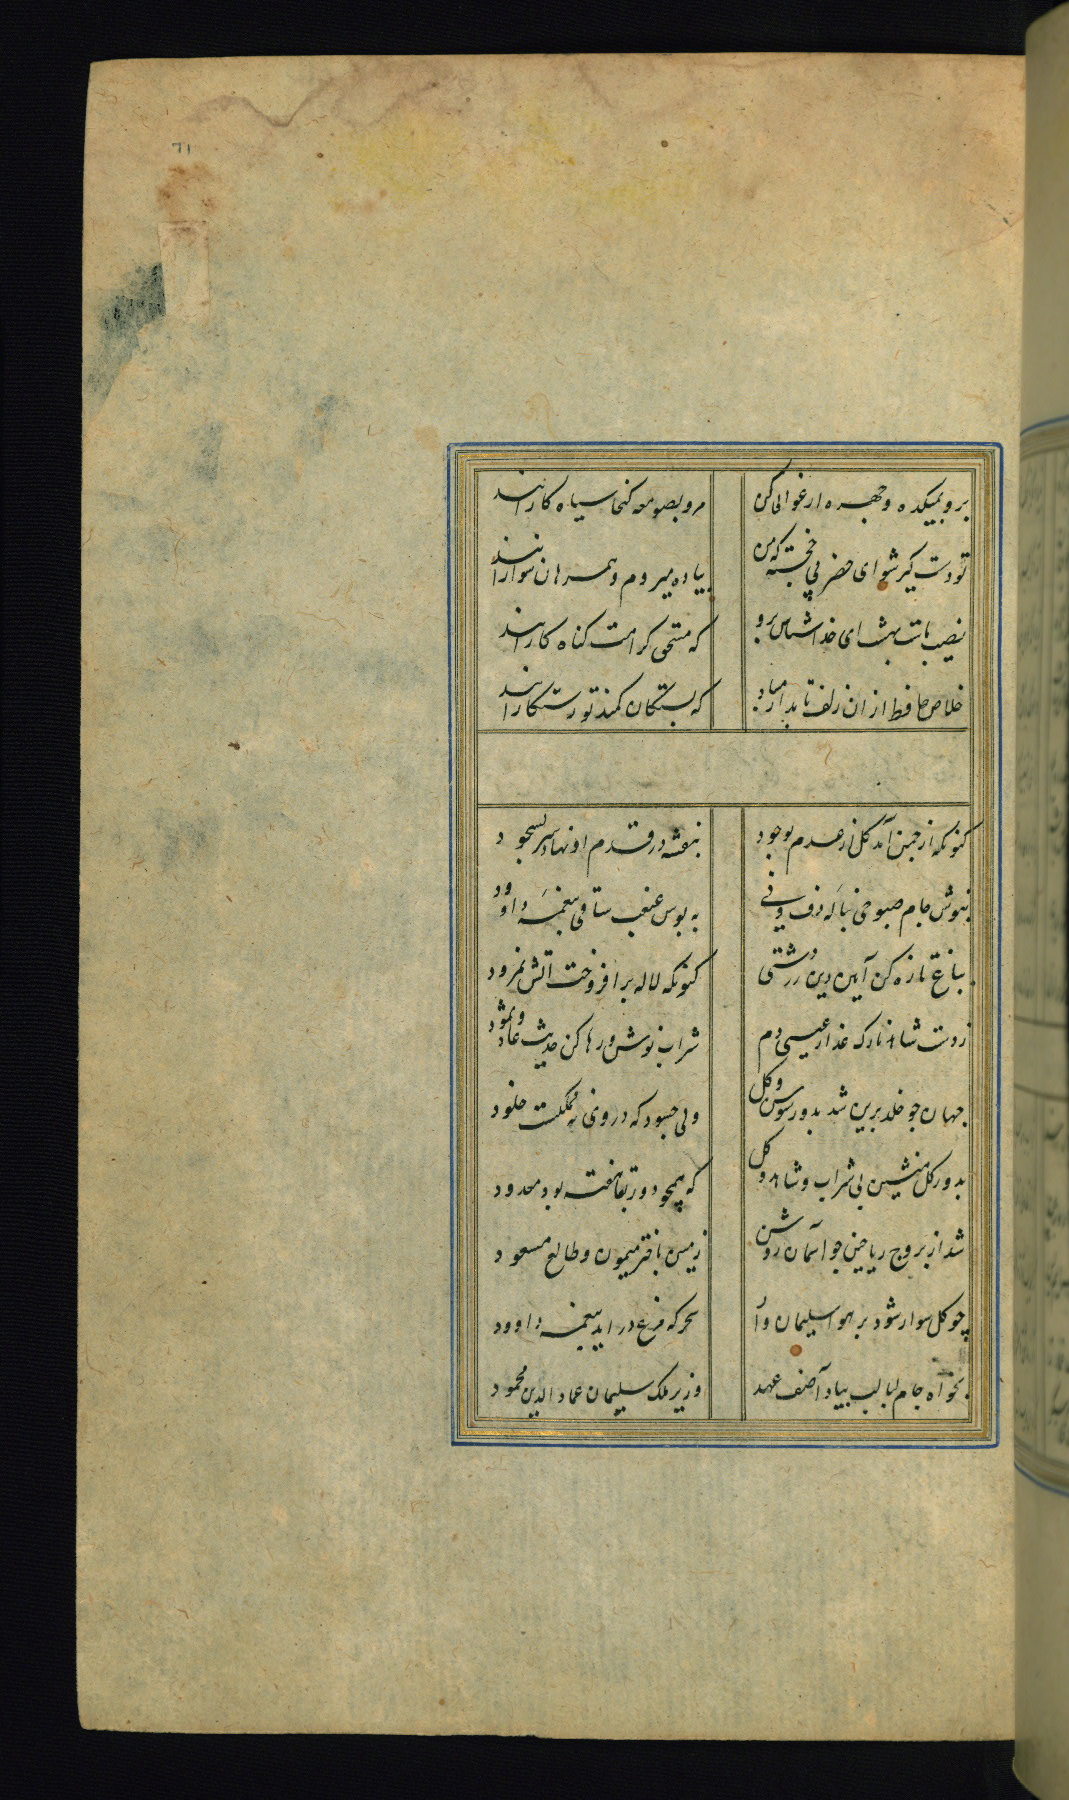 71
برو بمیکده و چهره ارغوانی کن	مرو بصومعه کانجا سیاه کارانند
تو دست کیر شو ای خضر پی خجسته که من	پیاده میروم و همرهان سوارانند
نصیب ماست بهشت ای خداشناس برو	که مستحق کرامت کناه کارانند
خلاص حافظ از ان زلف تابدار مباد	که بستکان کمند تو رستکارانند
کنونکه از چمن آمد کل از عدم بوجود	بنفشه در قدم او نهاد سر بسجود
بنوش جام صبوحی بناله دف و نی	ببوس غبغب ساقی بنغمه داوود
بباغ تازه کن آیین دین زردشتی	کنونکه لاله برافروخت آتش نمرود
ز دست شاهد نازک عذار عیسی دم	شراب نوش و رها کن حدیث عاد و ثمود
جهان چو خلد برین شد بدور سوسن و کل	ولی چسود که در وی نه ممکنست خلود
بدور کل منشین بی شراب و شاهد و	که همچو دور بقا هفته بود معدود
شد از بروج ریاحین چو آسمان روشن	زمین باختر میمون و طالع مسعود
چو کل سوار شود بر هوا سلیمان وار	سحر که مرغ در اید بنغمه داوود
بخواه جام لبالب بیاد آصف عهد	وزیر ملک سلیمان عماد الدین محمود